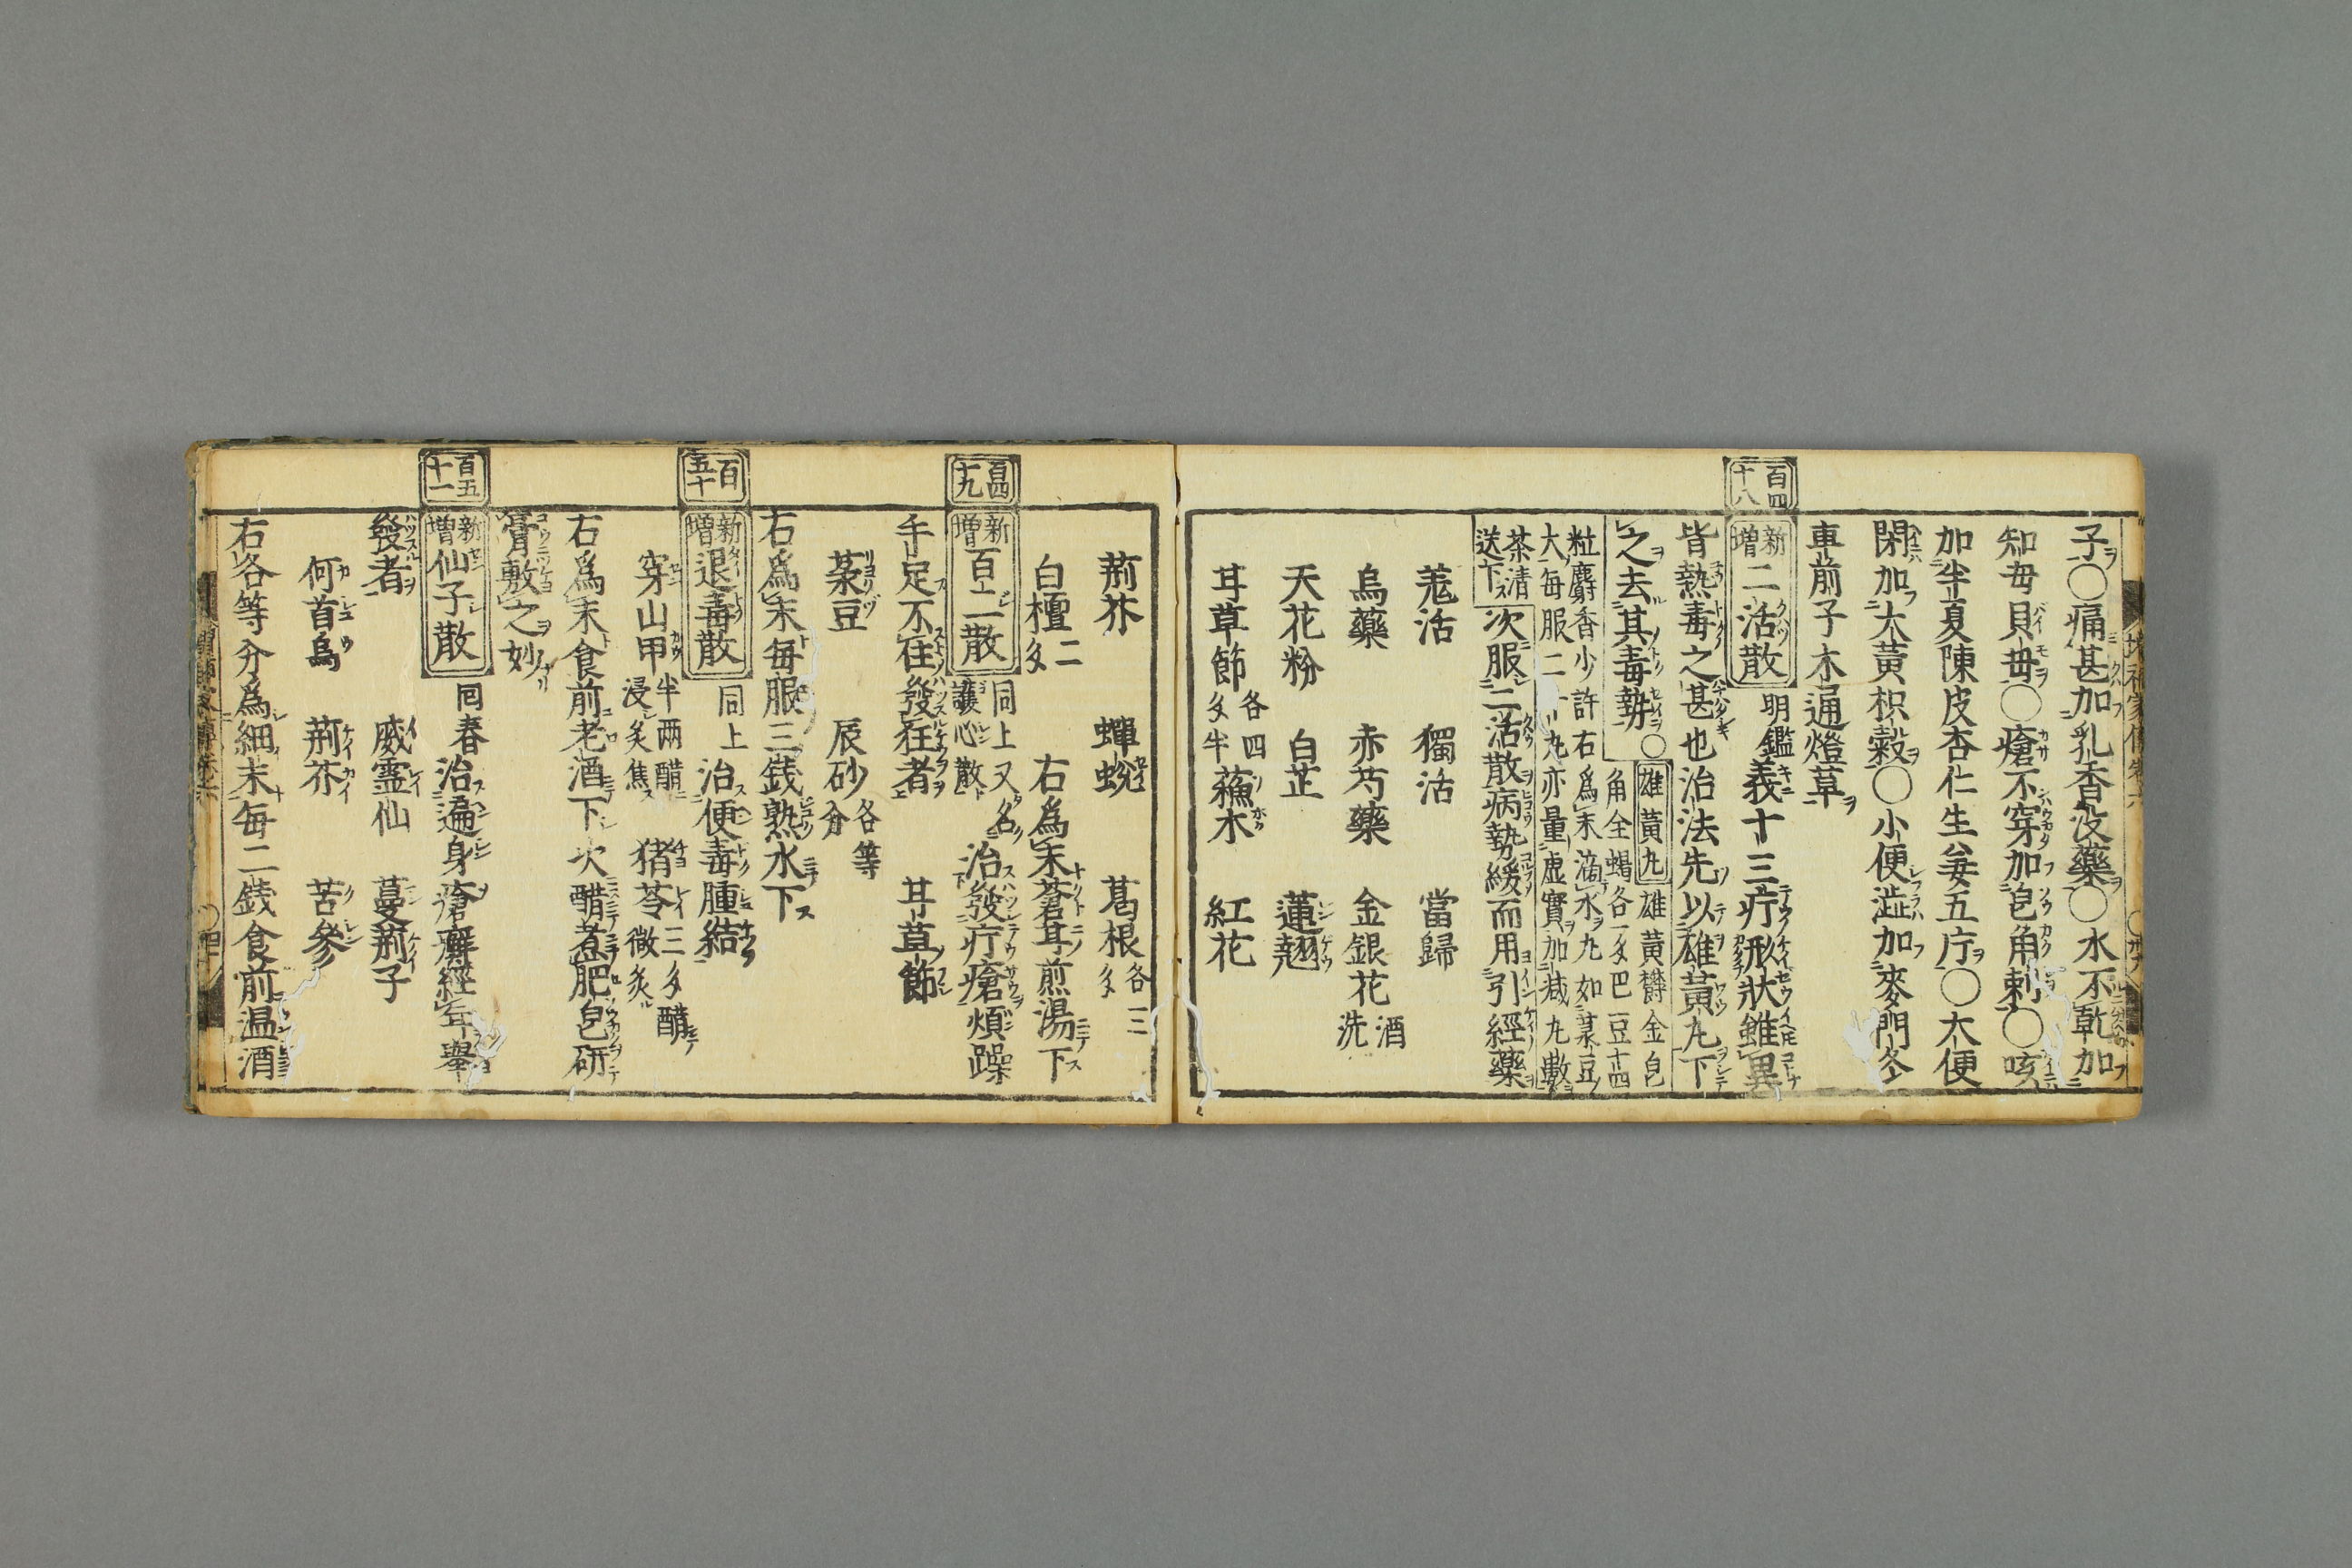 子〇痛甚加乳香没藥〇水不乾加
知母貝母〇瘡不穿加皀角刺〇咳
加半夏陳皮杏仁生姜五片〇大便
閉加大黃枳殼〇小便澁加麥門冬
車前子木通燈草
百四十八
新増二活散 明鑑義十三疔形狀雖異
皆熱毒之甚也治法先以雄黃丸下
之去其毒勢〇
雄黃丸 雄黃欝金皀
角全蝎各一匁巴豆十四
粒麝香少許右爲末滴水丸如菉豆
大每服二十丸亦量虛實加减丸數
茶清送下
次服二活散病勢緩而用引經藥
羗活 獨活 當歸
烏藥 赤芍藥 金銀花 酒洗
天花粉 白芷 蓮翹
甘草節 各四匁半 蘓木 紅花
荊芥 蟬蛻 葛根 各三匁
白檀 二匁 右爲末蒼耳煎湯下
百四十九
新増百二散 同上又名護心散 治發疔瘡煩躁
手足不住發狂者 甘草節
菉豆 辰砂 各等分
右爲末每服三錢熟水下
百五十
新増退毒散 同上 治便毒腫結
穿山甲 半兩醋浸炙焦 猪苓 三匁醋微炙
右爲末食前老酒下次醋煮肥皀研
膏敷之妙
百五十一
新増仙子散 回春治遍身瘡癬經年舉
發者 威霊仙 蔓荊子
何首烏 荊芥 苦參
右各等分爲細末每二錢食前温酒